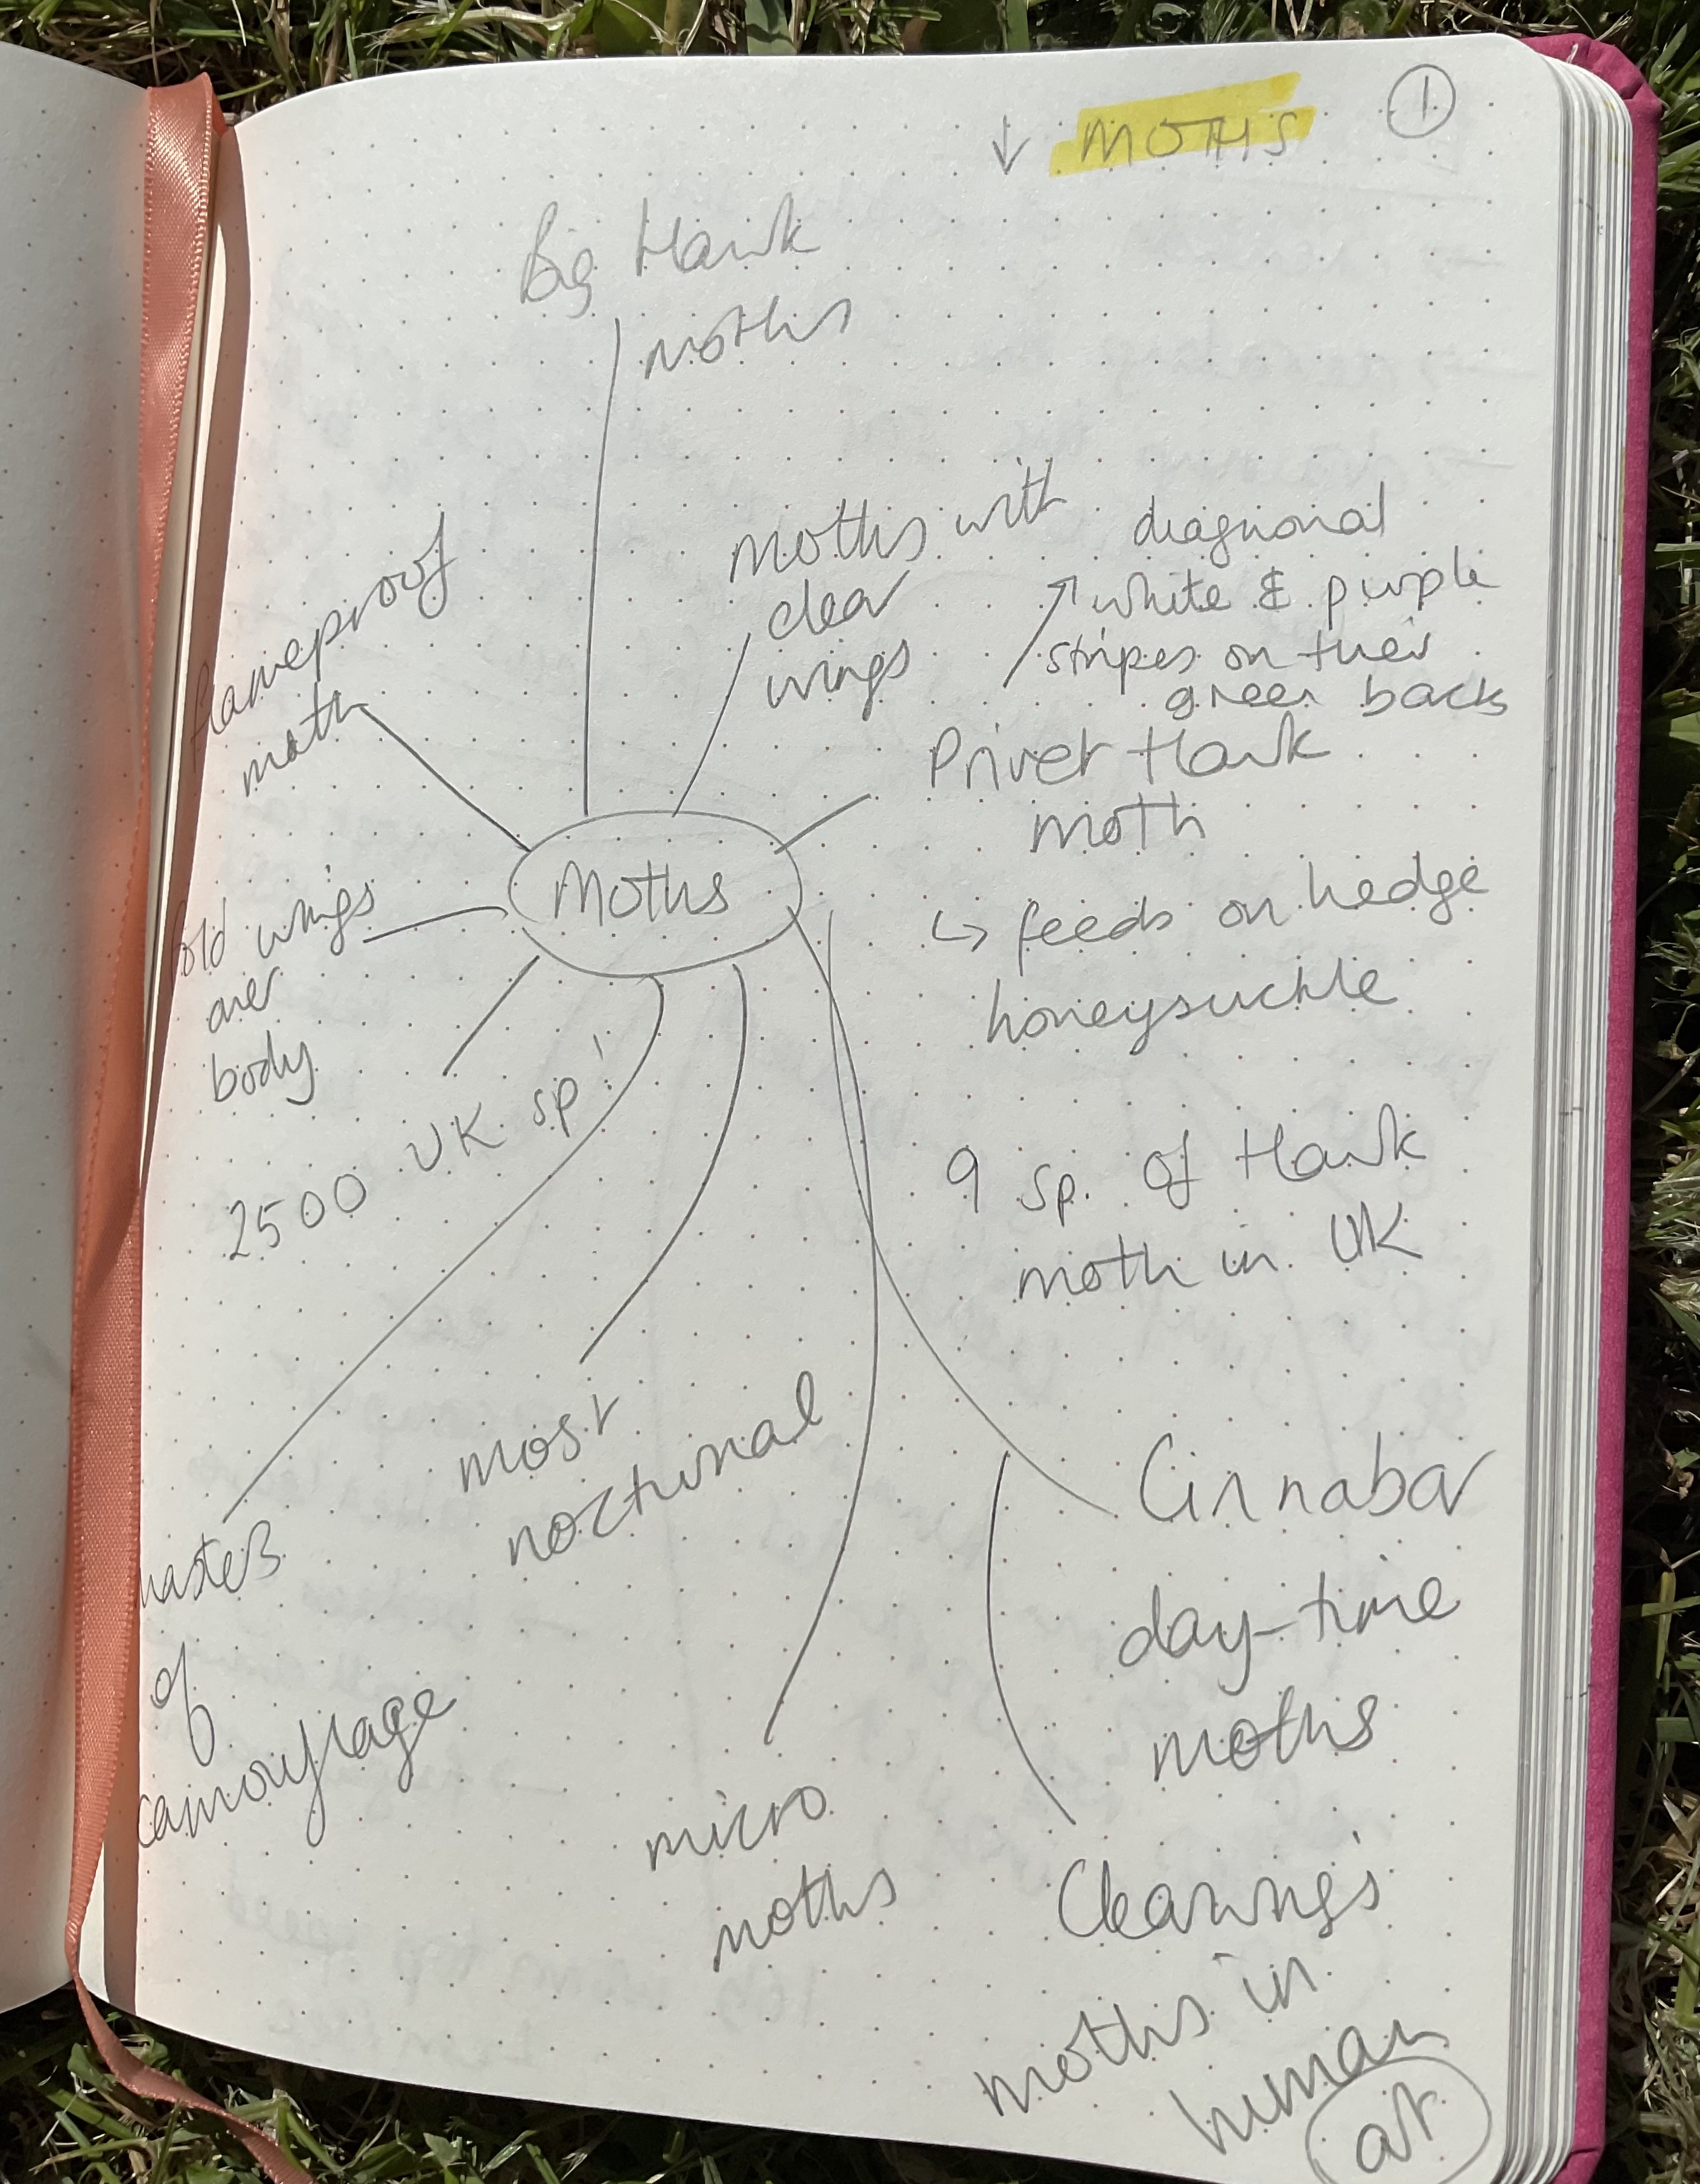 ↓ MOTHS
1
Big Hawk
moths
moths with
clear
wings
diagnonal
↗ white & purple
stripes on their
green backs
Privet Hawk
moth
↳ feeds on hedge
honeysuckle
9 sp. of Hawk
moth in UK
Cinnabar
day-time
moths
Clearwings
moths in
human
art
micro
moths
most
nocturnal
masters
of
camouflage
2500 UK sp!
fold wings
over
body
flameproof
moth
Moths